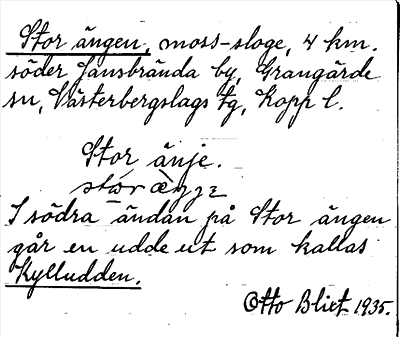 Stor ängen, moss-sloge, 4 km.
söder Jansbrända by, Grangärde
sn, Västerbergslags tg, Kopp l.
Stor änje.
I södra ändan på Stor ängen
går en udde ut som kallas
Kylludden.
Otto Blixt 1935.